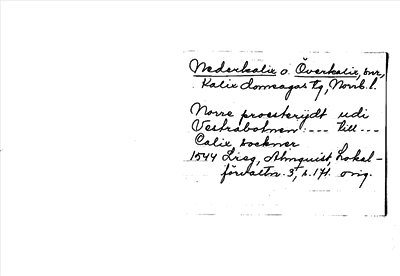 Nederkalix o. Överkalix, snr,
Kalix domsagas tg, Norrb. l.
Norre proesterijdt udi
Vestrabotnen: --- till ---
Calix sockner
1544 Lieg, Almquist, Lokal-
förvaltn. 3, s. 171. orig.